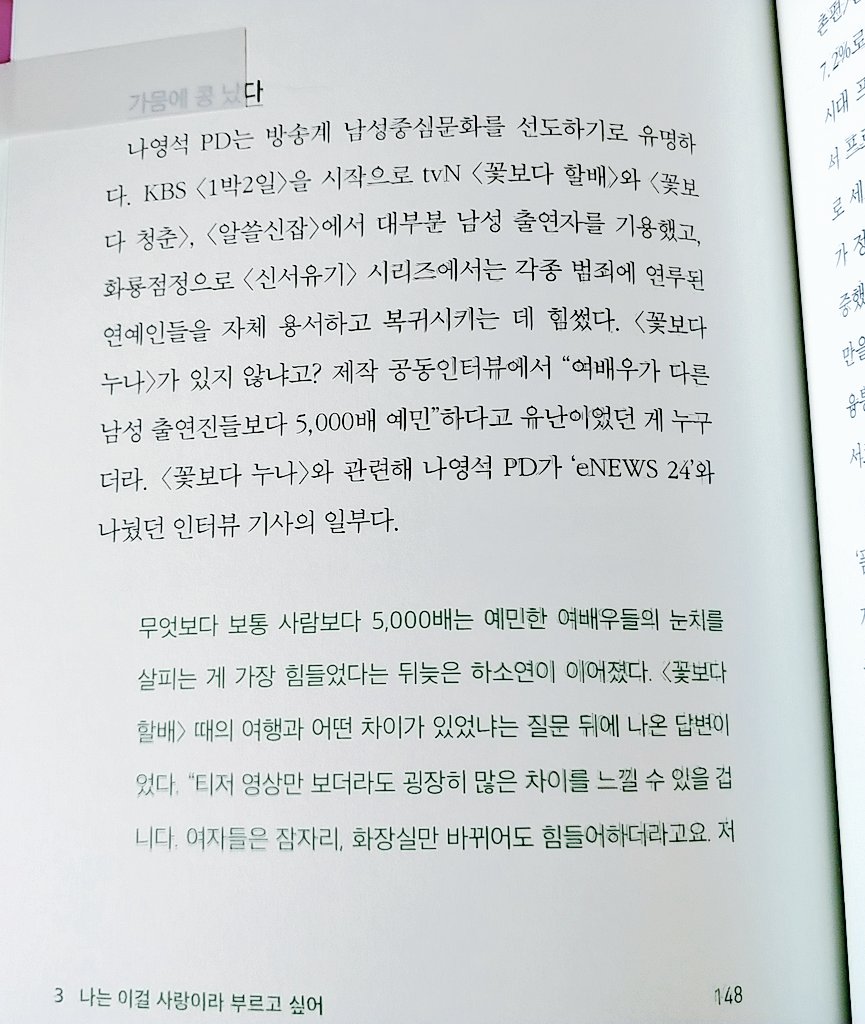 가뭄에 콩 났다
나영석 PD는 방송계 남성중심문화를 선도하기로 유명하
다. KBS 〈1박2일〉을 시작으로 tvN 〈꽃보다 할배〉와 〈꽃보
다 청춘〉, 〈알쓸신잡〉에서 대부분 남성 출연자를 기용했고,
화룡점정으로 〈신서유기〉 시리즈에서는 각종 범죄에 연루된
연예인들을 자체 용서하고 복귀시키는 데 힘썼다. 〈꽃보다
누나〉가 있지 않냐고? 제작 공동인터뷰에서 “여배우가 다른
남성 출연진들보다 5,000배 예민”하다고 유난이었던 게 누구
더라. 〈꽃보다 누나〉와 관련해 나영석 PD가 ‘eNEWS 24’와
나눴던 인터뷰 기사의 일부다.
무엇보다 보통 사람보다 5,000배는 예민한 여배우들의 눈치를
살피는 게 가장 힘들었다는 뒤늦은 하소연이 이어졌다. 〈꽃보다
할배〉 때의 여행과 어떤 차이가 있었냐는 질문 뒤에 나온 답변이
었다. “티저 영상만 보더라도 굉장히 많은 차이를 느낄 수 있을 겁
니다. 여자들은 잠자리, 화장실만 바뀌어도 힘들어하더라고요. 저
3 나는 이걸 사랑이라 부르고 싶어
148
7.2%로
시대 프
서 프로
로 세
가 정
중했
만을